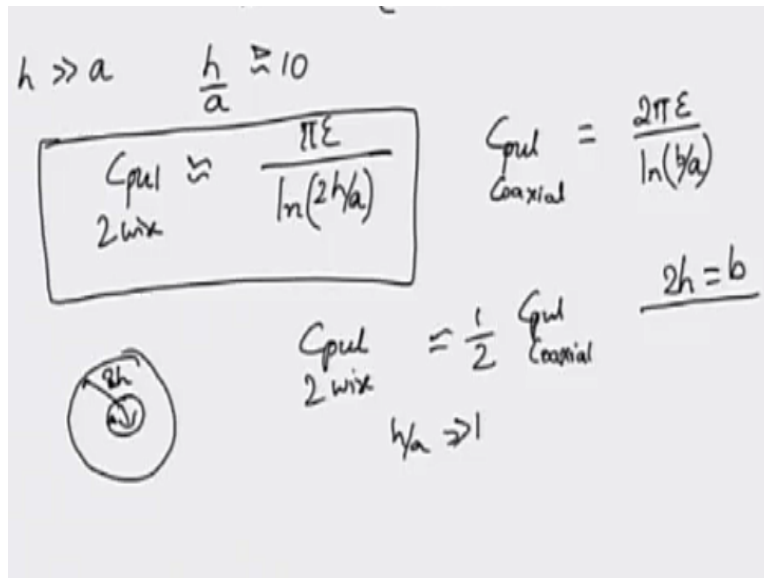 h >> a h/a ≳ 10
Cpul 2 wire ≈ πε / ln(2h/a)
Cpul Coaxial = 2πε / ln(b/a)
2h = b
Cpul 2 wire ≈ 1/2 Cpul Coaxial
h/a >> 1
2h
a